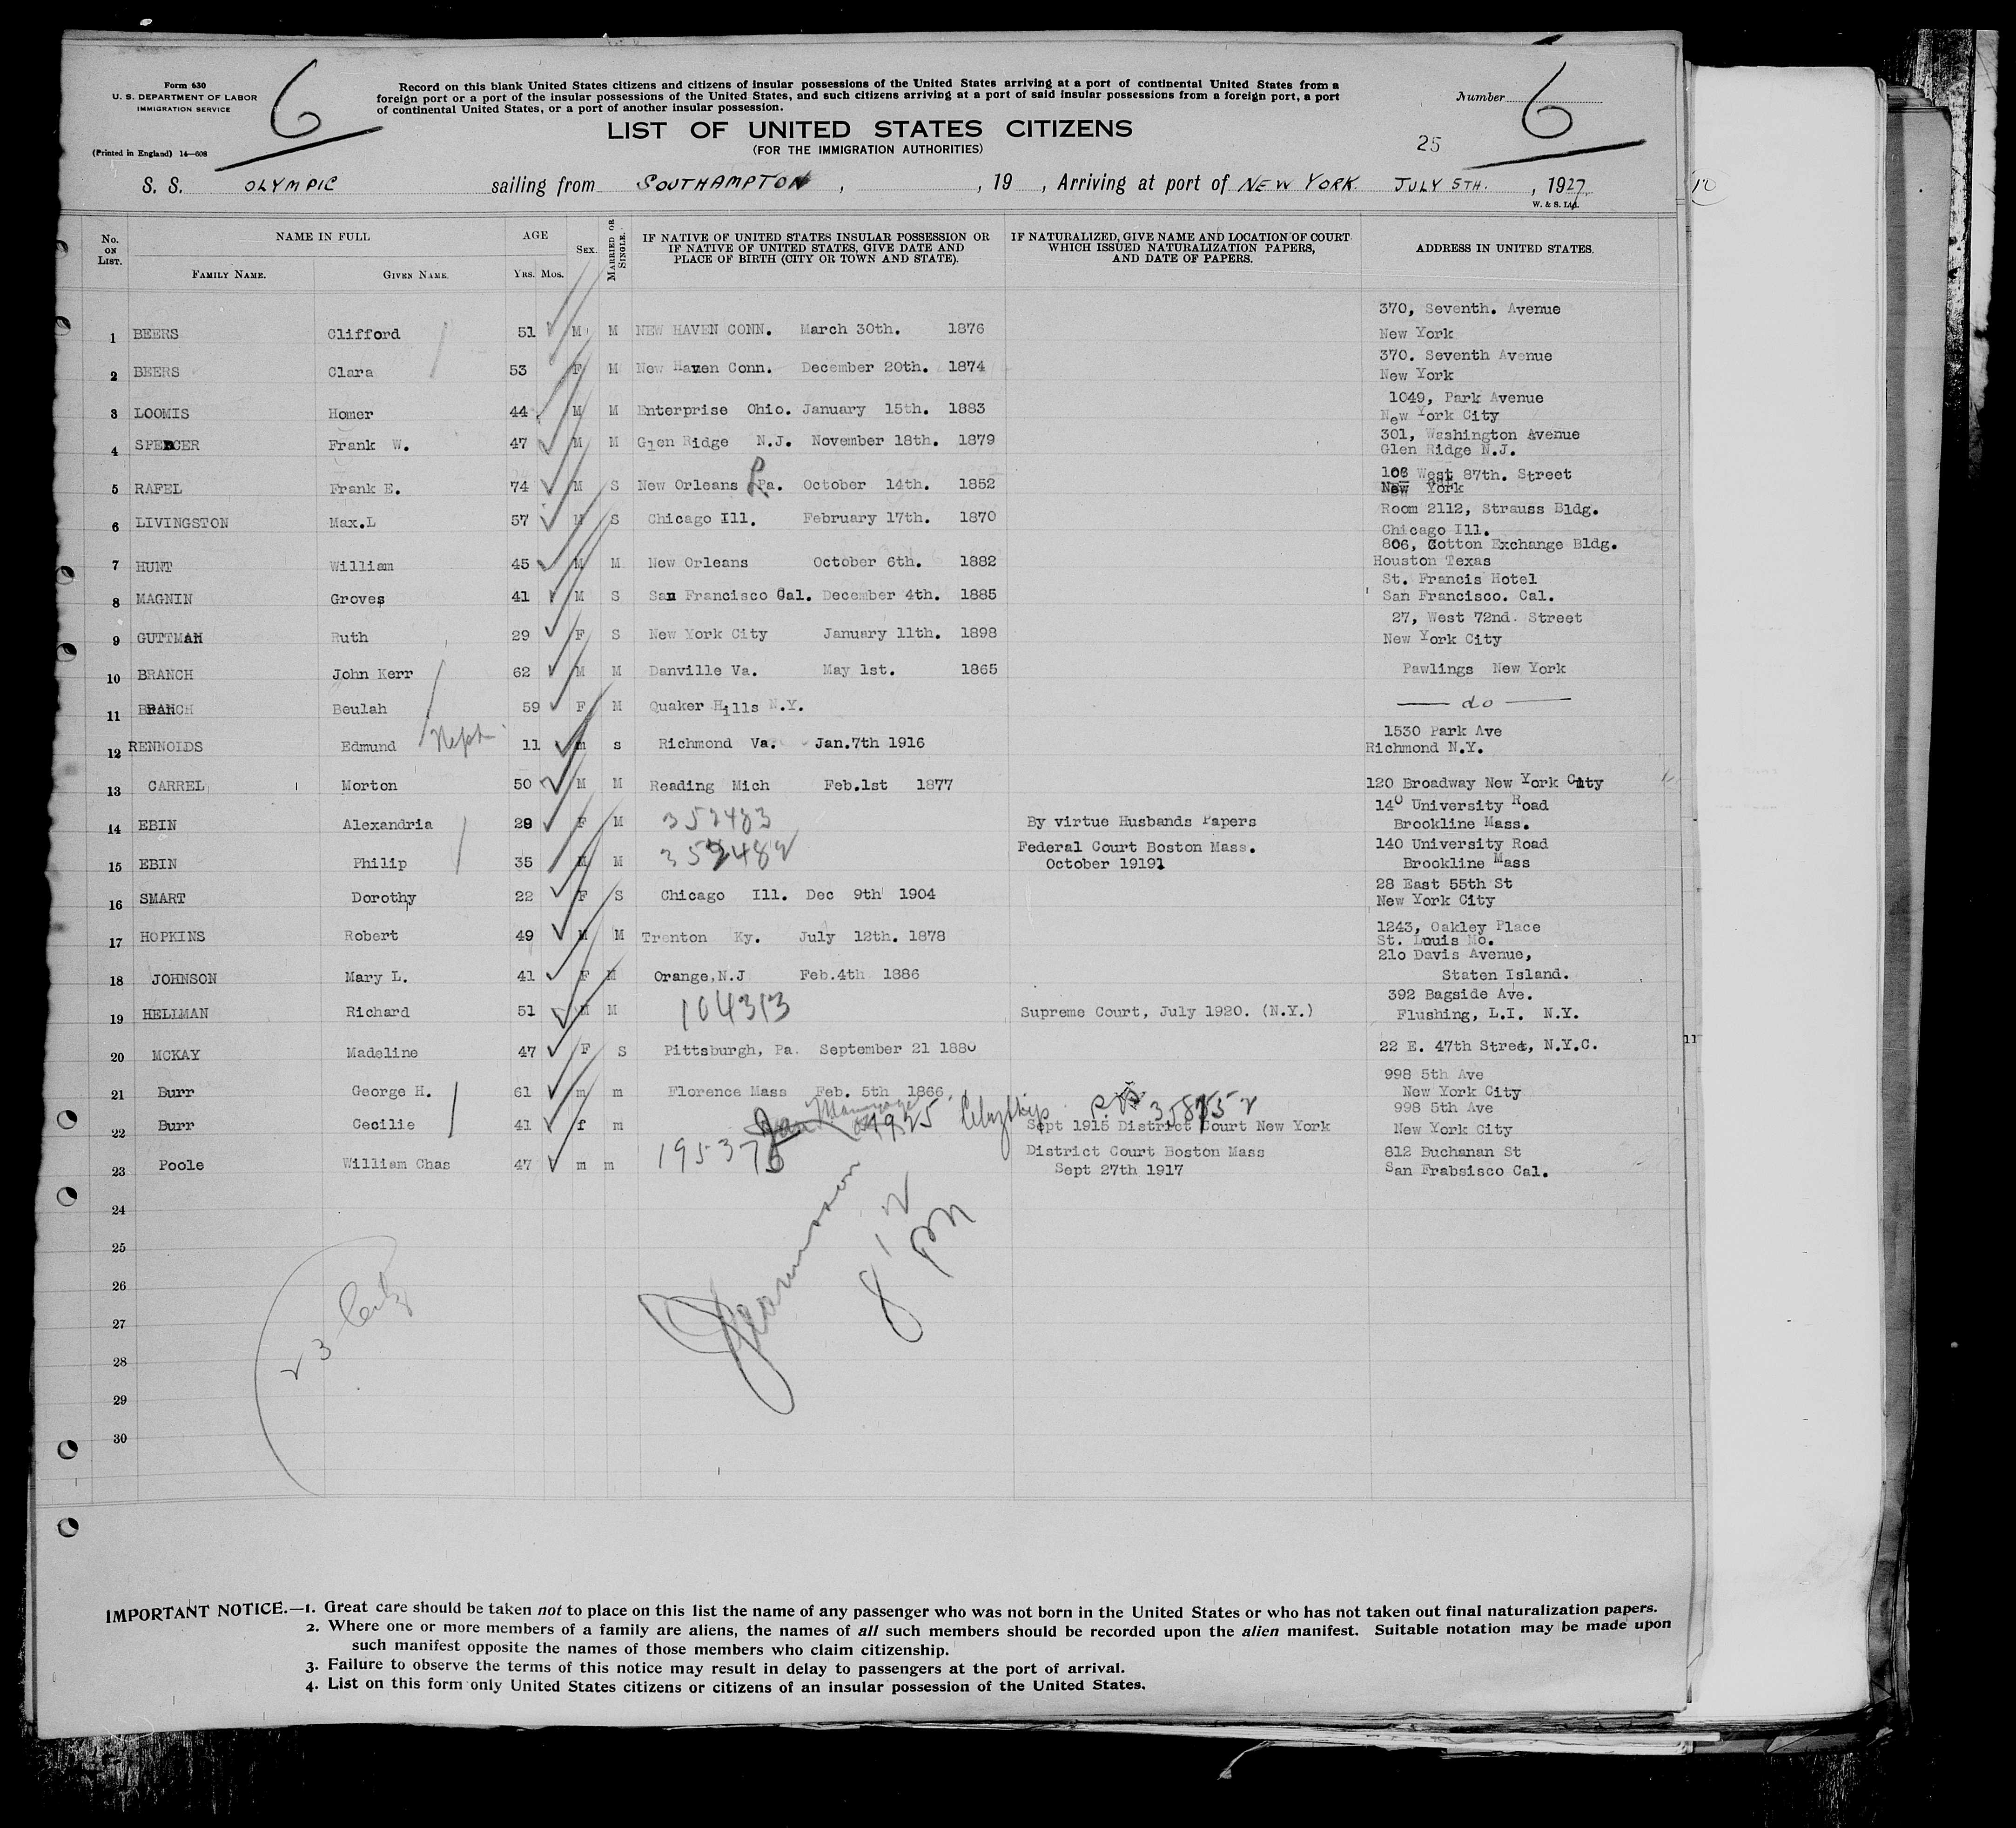 Form 630
U. S. DEPARTMENT OF LABOR
IMMIGRATION SERVICE
(Printed in England) 14—608
6
Record on this blank United States citizens and citizens of insular possessions of the United States arriving at a port of continental United States from a
foreign port or a port of the insular possessions of the United States, and such citizens arriving at a port of said insular possessions from a foreign port, a port
of continental United States, or a port of another insular possession.
Number 6
LIST OF UNITED STATES CITIZENS
(FOR THE IMMIGRATION AUTHORITIES)
25
S. S. OLYMPIC sailing from SOUTHAMPTON, , 19 , Arriving at port of NEW YORK. JULY 5TH. , 1927.
W. & S. Ltd.
No. ON LIST. NAME IN FULL AGE SEX. MARRIED OR SINGLE. IF NATIVE OF UNITED STATES INSULAR POSSESSION OR IF NATIVE OF UNITED STATES, GIVE DATE AND PLACE OF BIRTH (CITY OR TOWN AND STATE). IF NATURALIZED, GIVE NAME AND LOCATION OF COURT WHICH ISSUED NATURALIZATION PAPERS, AND DATE OF PAPERS. ADDRESS IN UNITED STATES.
FAMILY NAME. GIVEN NAME. YRS. MOS.
370, Seventh. Avenue
1 BEERS Clifford 51 M M NEW HAVEN CONN. March 30th. 1876 New York
370. Seventh Avenue
2 BEERS Clara 53 F M New Haven Conn. December 20th. 1874 New York
1049, Park Avenue
3 LOOMIS Homer 44 M M Enterprise Ohio. January 15th. 1883 New York City
301, Washington Avenue
4 SPENCER Frank W. 47 M M Glen Ridge N.J. November 18th. 1879 Glen Ridge N.J.
West 87th. Street
5 RAFEL Frank E. 74 M S New Orleans Pa. October 14th. 1852 New York
Room 2112, Strauss Bldg.
6 LIVINGSTON Max.L 57 M S Chicago Ill. February 17th. 1870 Chicago Ill.
806, Cotton Exchange Bldg.
7 HUNT William 45 M M New Orleans October 6th. 1882 Houston Texas
St. Francis Hotel
8 MAGNIN Groves 41 M S San Francisco Cal. December 4th. 1885 San Francisco. Cal.
27, West 72nd. Street
9 GUTTMAN Ruth 29 F S New York City January 11th. 1898 New York City
10 BRANCH John Kerr 62 M M Danville Va. May 1st. 1865 Pawlings New York
11 BRANCH Beulah 59 F M Quaker Hills N.Y. — do —
1530 Park Ave
12 RENNOLDS Edmund 11 m s Richmond Va. Jan.7th 1916 Richmond N.Y.
13 CARREL Morton 50 M M Reading Mich Feb.1st 1877 120 Broadway New York City
140 University Road
14 EBIN Alexandria 29 F M 352483 By virtue Husbands Papers Brookline Mass.
Federal Court Boston Mass. 140 University Road
15 EBIN Philip 35 M M 352482 October 19191 Brookline Mass
28 East 55th St
16 SMART Dorothy 22 F S Chicago Ill. Dec 9th 1904 New York City
1243, Oakley Place
17 HOPKINS Robert 49 M M Trenton Ky. July 12th. 1878 St. Louis Mo.
21o Davis Avenue,
18 JOHNSON Mary L. 41 F M Orange,N.J Feb.4th 1886 Staten Island.
392 Bagside Ave.
19 HELLMAN Richard 51 M M 104313 Supreme Court, July 1920. (N.Y.) Flushing, L.I. N.Y.
20 MCKAY Madeline 47 F S Pittsburgh, Pa. September 21 1880 22 E. 47th Street, N.Y.C.
998 5th Ave
21 Burr George H. 61 m m Florence Mass Feb. 5th 1866 New York City
Marriage 1925 998 5th Ave
22 Burr Cecilie 41 f m Sept 1915 District Court New York New York City
District Court Boston Mass 812 Buchanan St
23 Poole William Chas 47 m m Sept 27th 1917 San Frabsisco Cal.
24
25
26
27
28
29
30
8 12
PM
IMPORTANT NOTICE.—1. Great care should be taken not to place on this list the name of any passenger who was not born in the United States or who has not taken out final naturalization papers.
2. Where one or more members of a family are aliens, the names of all such members should be recorded upon the alien manifest. Suitable notation may be made upon
such manifest opposite the names of those members who claim citizenship.
3. Failure to observe the terms of this notice may result in delay to passengers at the port of arrival.
4. List on this form only United States citizens or citizens of an insular possession of the United States.